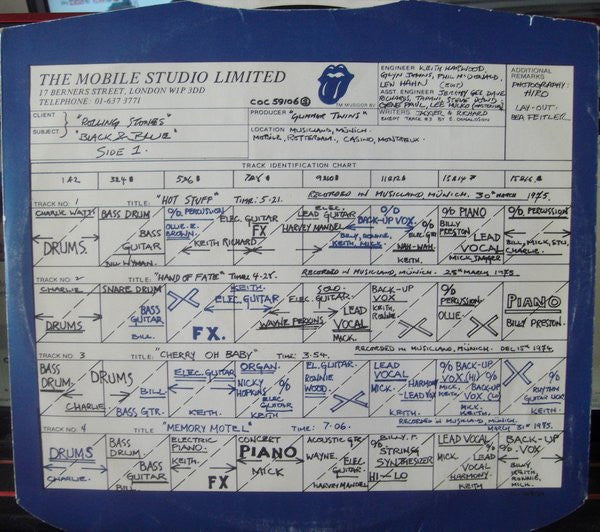 THE MOBILE STUDIO LIMITED
17 BERNERS STREET, LONDON W1P 3DD
TELEPHONE: 01-637 3771
COC 59106
TM MUSIDOR BV
ENGINEER KEITH HARWOOD,
GLYN JOHNS, PHIL McDONALD,
LEW HAHN
ASST ENGINEER JEREMY GEE, DAVE
RICHARDS, TAPANI,
GENE PAUL, LEE HULKO
ADDITIONAL
REMARKS
PHOTOGRAPHY:
HIRO
LAY-OUT:
BEA FEITLER.
CLIENT "ROLLING STONES"
SUBJECT "BLACK & BLUE"
SIDE 1.
PRODUCER "GLIMMER TWINS"
WRITERS JAGGER & RICHARD
EXCEPT TRACK #3 BY E. DONALDSON
LOCATION MUSICLAND, MÜNICH.
MOBILE, ROTTERDAM, CASINO, MONTREUX
TRACK IDENTIFICATION CHART
1 & 2 3 & 4 5 & 6 7 & 8 9 & 10 11 & 12 13 & 14 15 & 16
TRACK NO. 1 TITLE: "HOT STUFF" TIME: 5-21. RECORDED IN MUSICLAND MÜNICH. 30th MARCH 1975.
CHARLIE WATTS
DRUMS.
BASS DRUM
BASS
GUITAR
BILL WYMAN.
% PERCUSSION
OLLIE. E.
BROWN.
ELEC GUITAR
FX
KEITH RICHARD
ELEC.
LEAD GUITAR
HARVEY MANDEL
%
BACK-UP VOX.
BILLY, RONNIE,
KEITH, MICK.
ELEC GTR
WAH-WAH.
KEITH.
% PIANO
BILLY
PRESTON
LEAD
VOCAL
MICK JAGGER
% PERCUSSION
BILL, MICK, STU,
CHARLIE.
TRACK NO. 2 TITLE: "HAND OF FATE" TIME: 4-28. RECORDED IN MUSICLAND, MÜNICH. 25th MARCH 1975.
CHARLIE
DRUMS
SNARE DRUM
BASS
GUITAR
BILL.
KEITH.
ELEC. GUITAR
FX.
SOLO.
ELEC. GUITAR.
WAYNE PERKINS
LEAD
VOCAL
MICK.
BACK-UP
VOX
KEITH,
RONNIE
%
PERCUSSION
OLLIE
PIANO
BILLY PRESTON.
TRACK NO. 3 TITLE: "CHERRY OH BABY" TIME: 3-54. RECORDED IN MUSICLAND, MÜNICH. DEC 15th 1974.
BASS
DRUM.
DRUMS
CHARLIE
BILL
BASS GTR.
ELEC. GUITAR
KEITH.
ORGAN.
NICKY
HOPKINS
%
ELEC
GUITAR
KEITH
EL. GUITAR
RONNIE
WOOD.
%
LEAD
VOCAL
MICK.
HARMONY
LEAD VOX
% BACK-UP
VOX (HI)
MICK,
BACK-UP
VOX (LO)
MICK,
KEITH.
%
RHYTHM
GUITAR
KEITH.
TRACK NO. 4 TITLE "MEMORY MOTEL" TIME: 7-06. RECORDED IN MUSICLAND, MÜNICH.
MARCH 31st 1975.
DRUMS
CHARLIE.
BASS
DRUM.
BASS
GUITAR
BILL
ELECTRIC
PIANO.
KEITH.
FX
CONCERT
PIANO
MICK
ACOUSTIC GTR
WAYNE.
ELEC
GUITAR
HARVEY MANDEL
BILLY. P.
%
STRING
SYNTHESIZER
HI - LO
LEAD VOCAL
MICK
%
LEAD
VOCAL
HARMONY
KEITH
BACK-UP
% VOX.
BILLY,
KEITH,
RONNIE,
MICK.